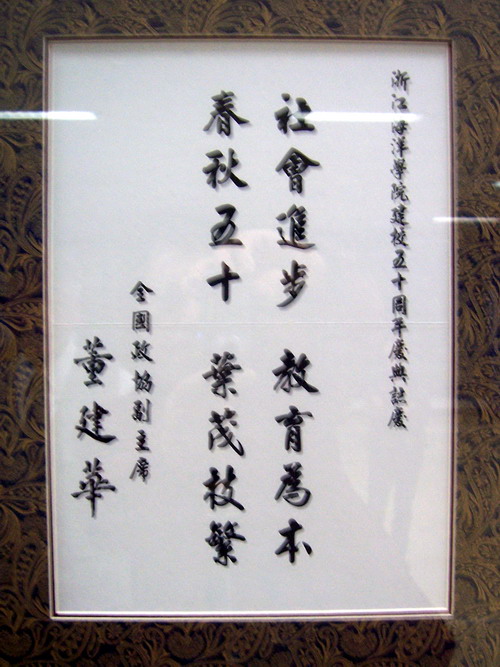 浙江海洋學院建校五十周年慶典誌慶
社會進步 教育為本
春秋五十 葉茂枝繁
全國政協副主席
董建華